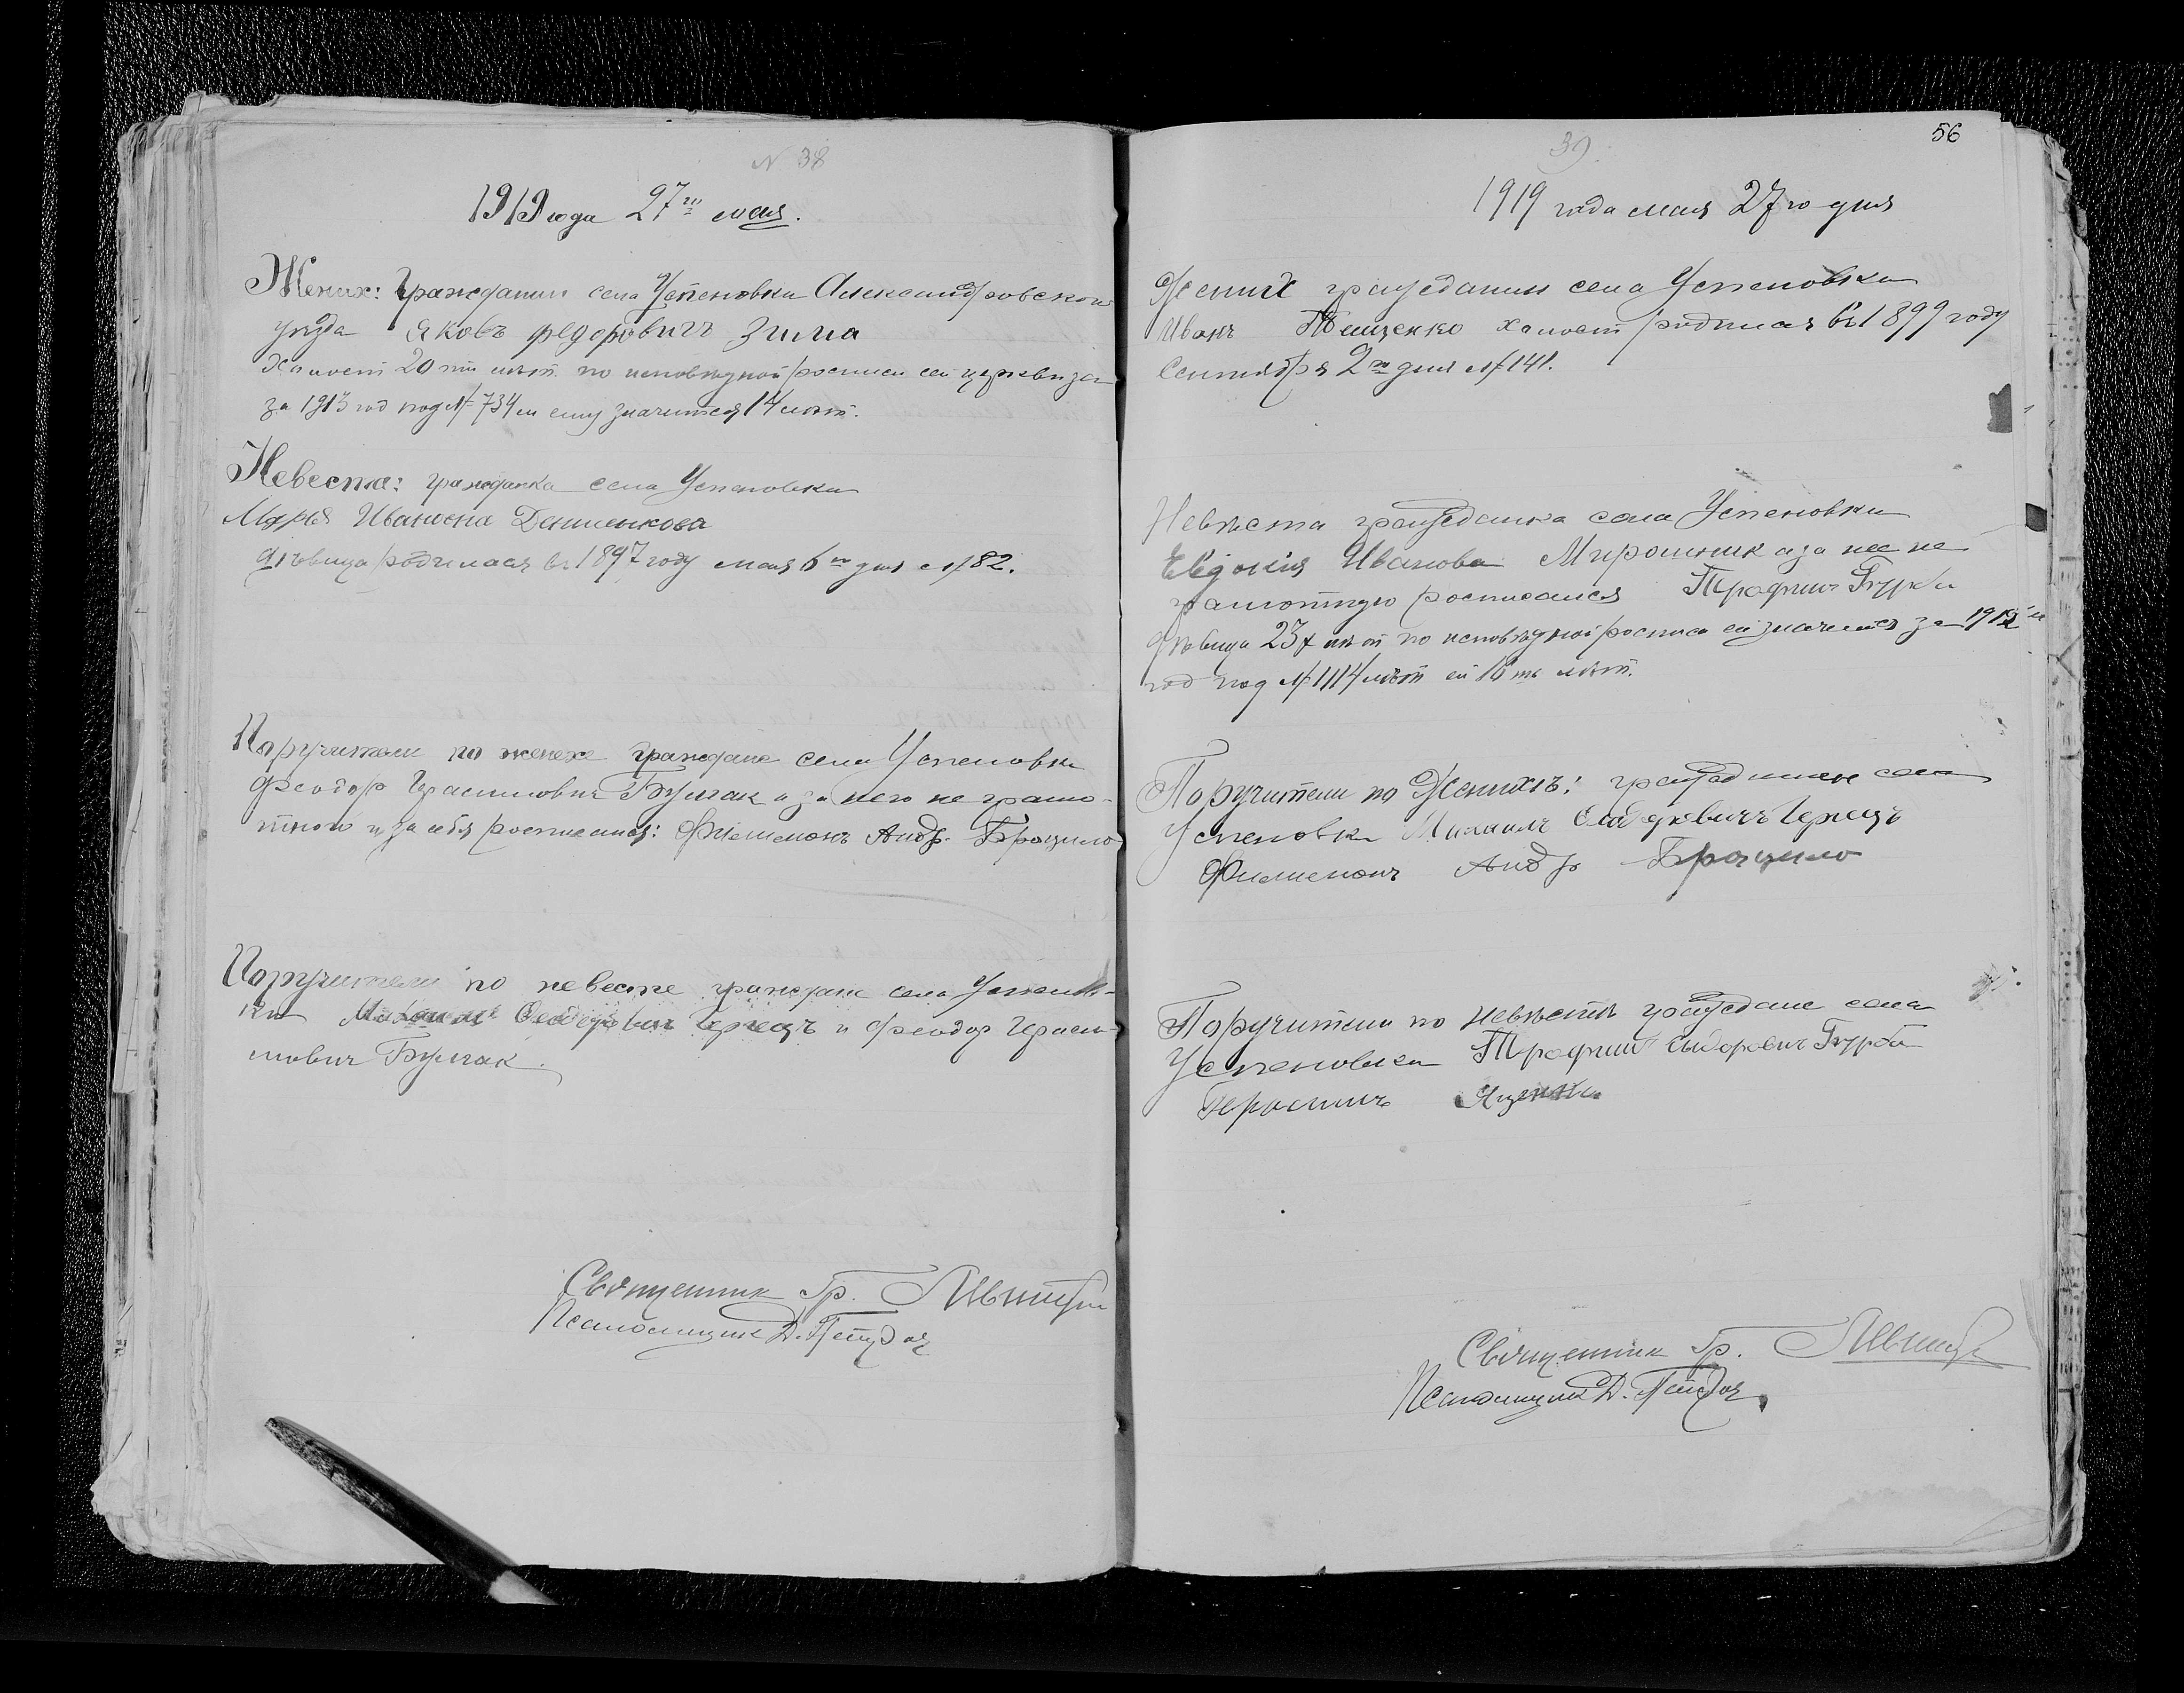 N 38
1919 года 27го мая.
Жених: Гражданин села Успеновки Александровского
уѣзда Яковъ Федоровичъ Зима
Холост 20ти лѣт. по исповѣдной росписи сей церкви за
за 1913 год под № 734м ему значится 14 лѣт.
Невеста: гражданка села Успеновки
Марья Ивановна
дѣвица родилась въ 1897 году мая 6го дня № 82.
Поручители по женихе граждане села Успеновки
Феодор Герасимович Булгак а за него не грамо-
тного и за себя росписался: Филимонъ Андр.
Поручители по невесте граждане села Успенов-
ки Михаил и Феодор Гераси-
мович Булгак.
Священник Гр.
Псаломщик Д.
56
39
1919 года мая 27го дня
Жених гражданин села Успеновки
Иванъ холост родился въ 1899 году
Сентября 2го дня № 141.
Невѣста гражданка села Успеновки
Евдокия Иванова Мирошник а за нее не
грамотную росписался Трофим Гурба
дѣвица 23х лѣт по исповѣдной росписи ей значится за
год под № 1114 лѣт ей 16ть лѣт.
Поручители по Женихѣ: граждане села
Успеновки Михаилъ
Филимонъ Андр
Поручители по невѣстѣ граждане села
Успеновки Трофим Сидорович Гурба
Герасимъ Яценко
Священник Гр.
Псаломщик Д.